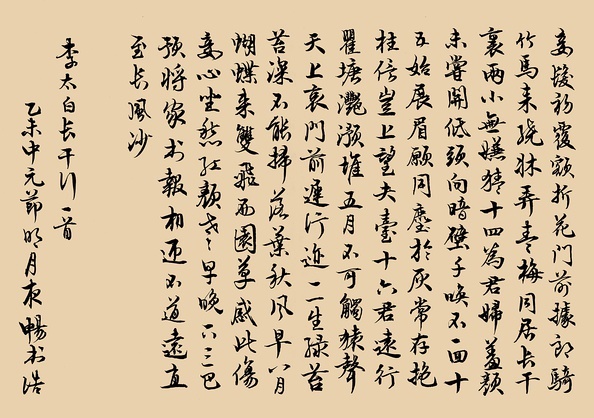 妾髮初覆額折花門前據郎騎
竹馬來遶牀弄青梅同居長干
裏兩小無嫌猜十四為君婦羞顏
未嘗開低頭向暗壁千喚不一回十
五始展眉願同塵於灰常存抱
柱信豈上望夫臺十六君遠行
瞿塘灧澦堆五月不可觸猿聲
天上哀門前遲行迹一一生綠苔
苔深不能掃落葉秋風早八月
蝴蝶來雙飛西園草感此傷
妾心坐愁紅顏老早晚下三巴
預將家書報相迎不道遠直
至長風沙
李太白長干行一首
乙未中元節明月夜暢書浩